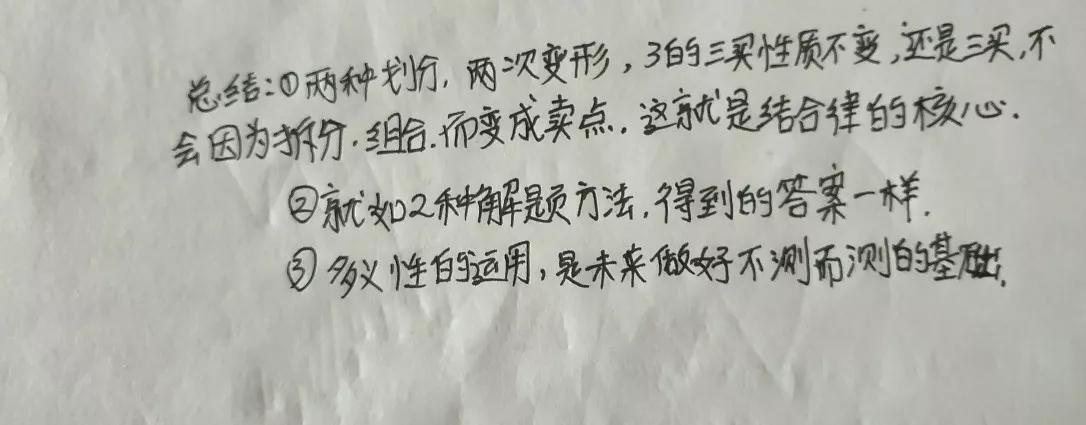 总结:①两种划分,两次变形,3的三买性质不变,还是三买,不
会因为拆分.组合.而变成卖点.这就是结合律的核心.
②就如2种解题方法,得到的答案一样.
③多义性的运用,是未来做好不测而测的基础.